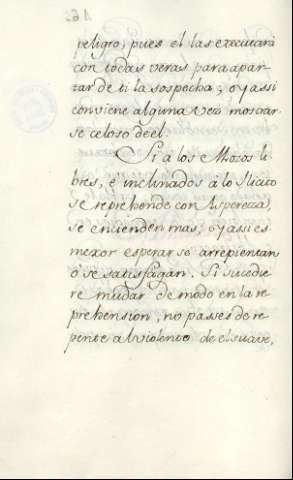 peligro, pues el las executará
con todas veras para apar-
tar de ti la sospecha; oy assi
conviene alguna vez mostrar-
se celoso de el.
Si a los Mozos li-
bres, é inclinados a lo Ilicito
se reprehende con Aspereza,
se encienden mas; oy assi es
mexor esperar se arrepientan
ó se satisfagan. Si sucedie-
re mudar de modo en la re-
prehension, no passes de re-
pente al violento de el suave,